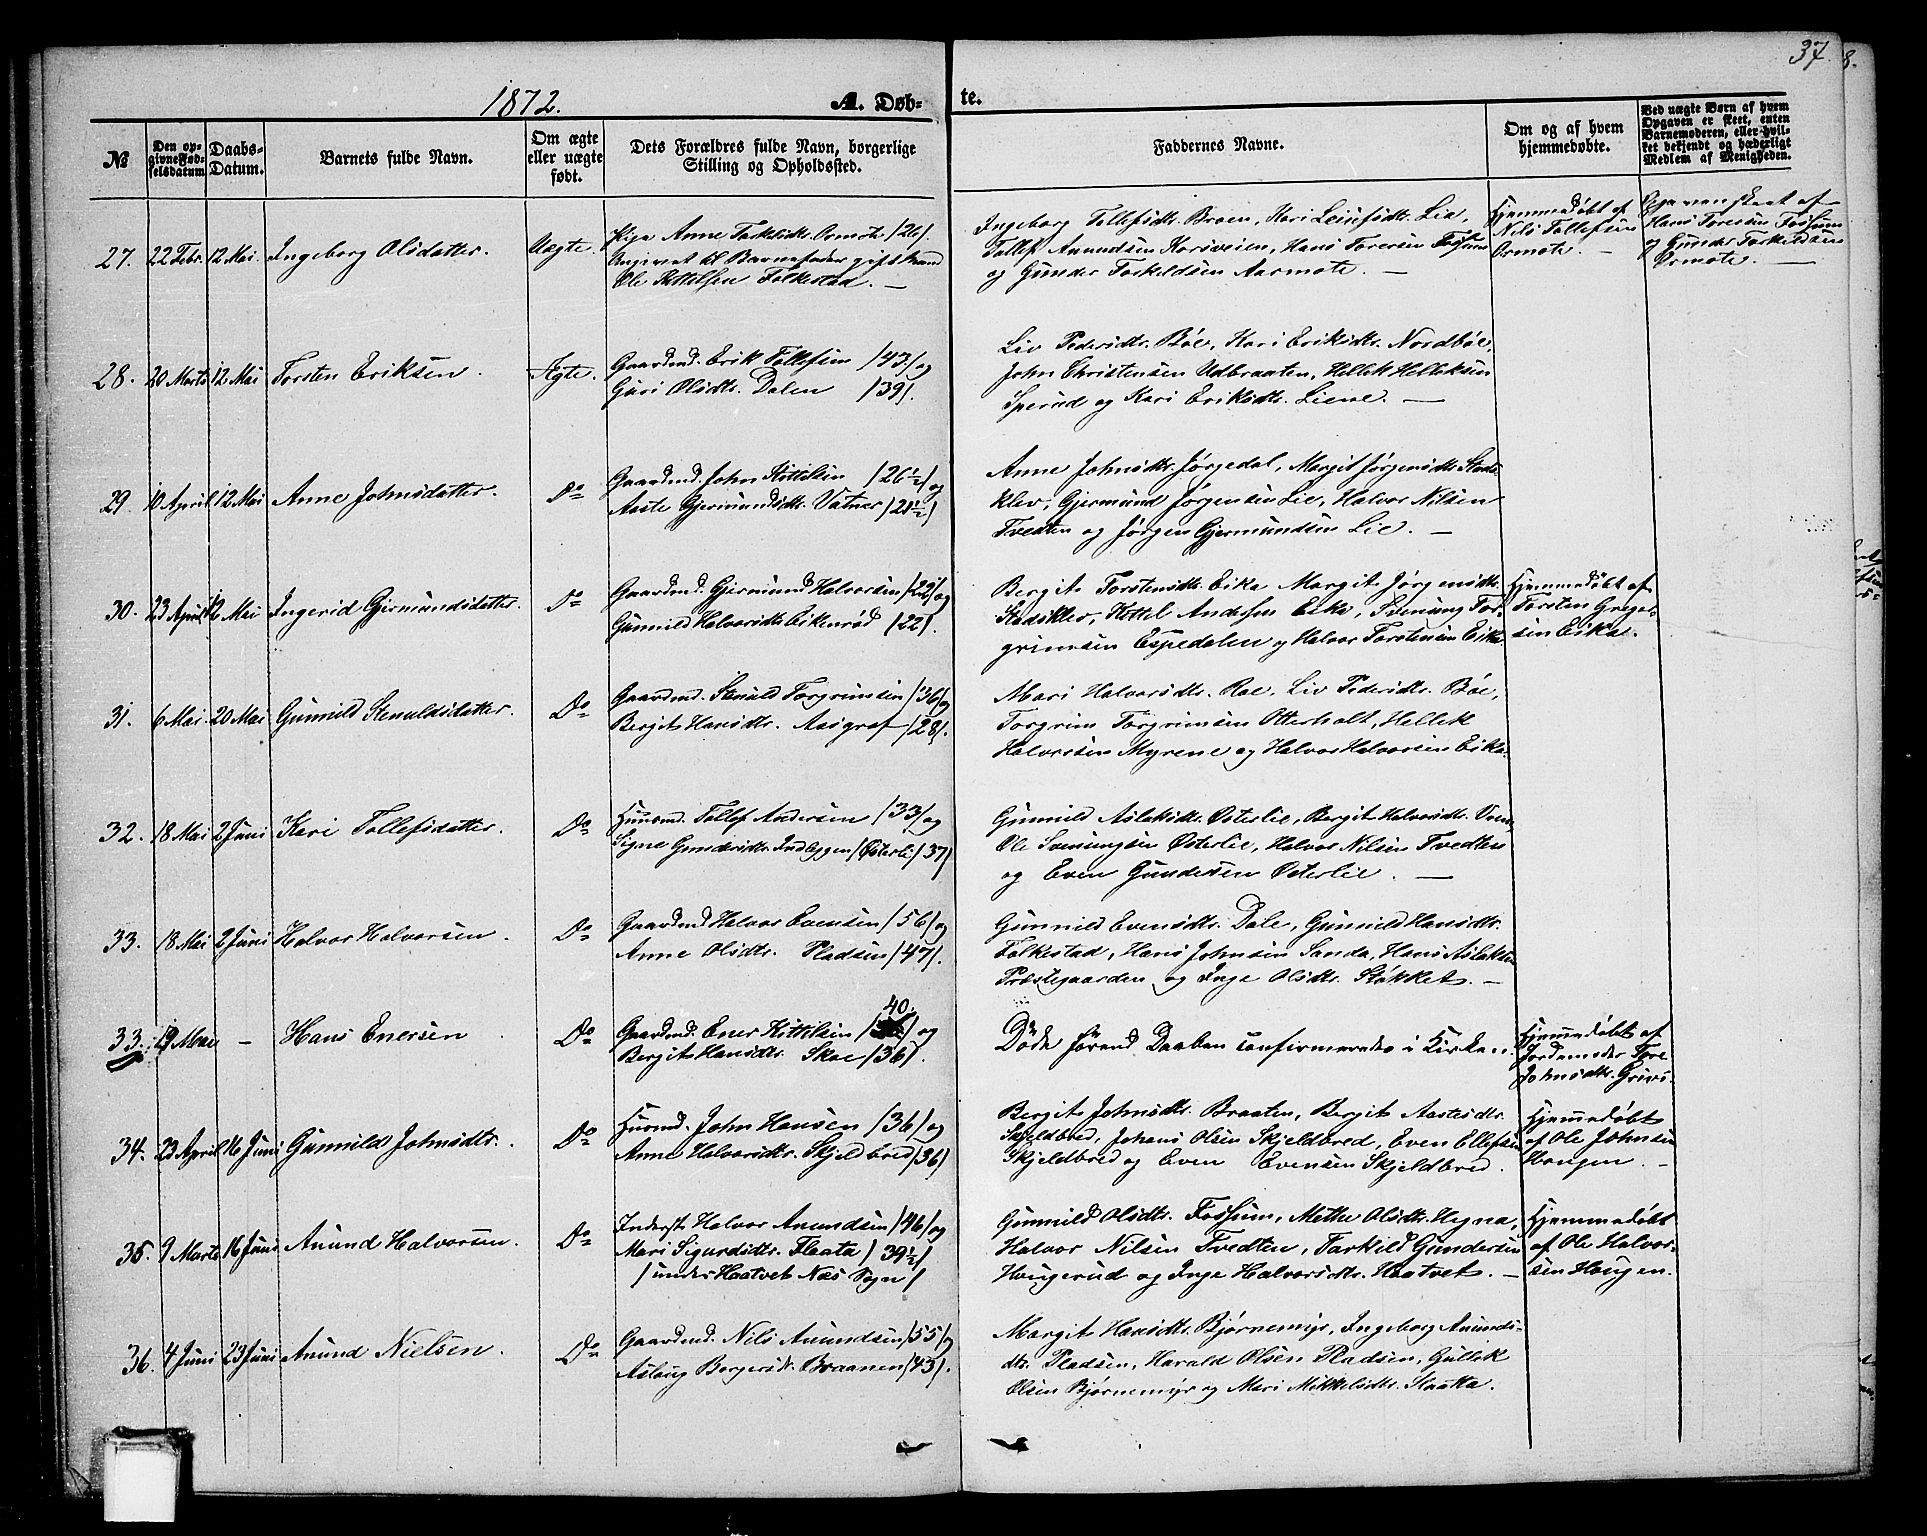 37.
8.
1872.
A. Døb-
te.
№
Den op-
givne Fød-
selsdatum
Daabs-
Datum.
Barnets fulde Navn.
Om ægte
eller uægte
født.
Dets Forældres fulde Navn, borgerlige
Stilling og Opholdssted.
Faddernes Navne.
Om og af hvem
hjemmedøbte.
Ved uægte Børn af hvem
Opgaven er skeet, enten
Barnemoderen, eller hvil-
ket bekjendt og hæderligt
Medlem af Menigheden.
27. 22 Febr. 12 Mai. Ingeborg Olsdatter. Uægte.
Pige Anne Torkilsdtr. Ormote /26/.
Angivet til Barnefader gift Mand
Ole Kittilsen Folkestad. —
Ingeborg Tollefsdtr. Braen, Kari Leiufsdtr. Lie,
Tollef Anundsen Korsveien, Hans Toresen Fossum
og Gunder Torkeldsen Aarmote. —
Hjemmedøbt af
Nils Tollefsen
Ormote. —
Opgaven skeet af
Hans Toresen Fossum
og Gunder Torkildsen
Ormote. —
28. 20 Marts 12 Mai Torsten Eriksen. Ægte.
Gaardmd. Erik Tollefsen /43/ og
Guri Olsdtr. Dalen /39/.
Liv Pedersdtr. Bøe, Kari Eriksdtr. Nordbøe,
John Christensen Udbraaten, Hellek Helleksen
Sperud og Kari Eriksdtr. Liene. —
29. 10 April 12 Mai Anne Johnsdatter. Do
Gaardmd. John Kittilsen /26½/ og
Aaste Gjermundsdtr. Vatnar /21½/
Anne Johnsdtr. Jørgedal, Margit Jørgensdtr. Stads-
klev, Gjermund Jørgensen Lie, Halvor Nilsen
Tvedten og Jørgen Gjermundsen Lie. —
30. 23 April 12 Mai Ingerid Gjermundsdatter. Do
Gaardmd. Gjermund Halvorsen /29/ og
Gunnild Halvorsdtr. Eikenrød /22/.
Bergit Torstensdtr. Eika Margit Jørgensdtr.
Stadsklev, Kittel Andersen Eika, Svenung Tor-
grimsen Espedalen og Halvor Torstensen Eika.
Hjemmedøbt af
Torsten Gregers-
sen Eika.
31. 6 Mai. 20 Mai Gunnild Stenulsdatter. Do
Gaardmd. Stenuld Torgrimsen /36/ og
Bergit Hansdtr. Aasgraf /28/.
Mari Halvorsdtr. Roe, Liv Pedersdtr. Bøe,
Torgrim Torgrimsen Otterholt, Hellek
Halvorsen Myrene og Halvor Halvorsen Eika.
32. 18 Mai 2 Juni Kari Tollefsdatter. Do
Husmd. Tollef Andersen /33/ og
Signe Gundersdtr. Indlæggen /Østerli/ 37/
Gunnild Aslaksdtr. Østerlie, Bergit Halvorsdtr.
Ole Svenungsen Østerlie, Halvor Nilsen Tvedten
og Even Gundersen Østerlie. —
33. 18 Mai 2 Juni Halvor Halvorsen. Do
Gaardmd Halvor Evensen /56/ og
Anne Olsdtr. Pladsen /47/.
Gunnild Evensdtr. Dale, Gunnild Hansdtr.
Folkestad, Hans Johnsen Sanda, Hans Aslaksen
Præstegaarden og Inge Olsdtr. Støkket. —
33. 19 Mai — Hans Enersen. Do
40.
Gaardmd. Ener Kittilsen og
Bergit Hansdtr. Skoe /36/.
Døde førend Daaben confirmeredes i Kirken.
Hjemmedøbt af
Jordemoder Tore
Johnsdtr. Grivi.
34. 23 April 16 Juni Gunnild Johnsdtr. Do
Husmd. John Hansen /36/ og
Anne Halvorsdtr. Skjeldbred /36/
Bergit Johnsdtr. Braaten, Bergit Aastesdtr.
Skjeldbred, Johans Olsen Skjeldbred, Even Ellefsen
Skjeldbred og Even Evensen Skjeldbred.
Hjemmedøbt
af Ole Johnsen
Hougen. —
35. 9 Marts 16 Juni Anund Halvorsen. Do
Inderst Halvor Anundsen /46/ og
Mari Sigurdsdtr. Flaata / 39½/
/under Haatvet Næs Sogn/
Gunnild Olsdtr. Fossum, Methe Olsdtr. Hegna,
Halvor Nilsen Tvedten, Tarkild Gundersen
Hougerud og Inge Halvorsdtr. Haatvet. —
Hjemmedøbt
af Ole Halvor-
sen Hougen.
36. 4 Juni 23 Juni Anund Nielsen. Do
Gaardmd. Nils Anundsen /55/ og
Aslaug Borgersdtr. Braanen /43/.
Margit Hansdtr. Bjørnemyr, Ingeborg Anunds-
dtr. Pladsen, Harald Olsen Pladsen, Gullek
Olsen Bjørnemyr og Mari Mikkelsdtr. Staatta.